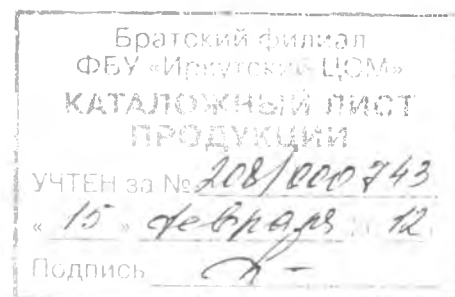 Братский филиал
ФБУ «Иркутский ЦСМ»
КАТАЛОЖНЫЙ ЛИСТ
ПРОДУКЦИИ
УЧТЕН за № 208/000743
« 15 » февраля 12
Подпись